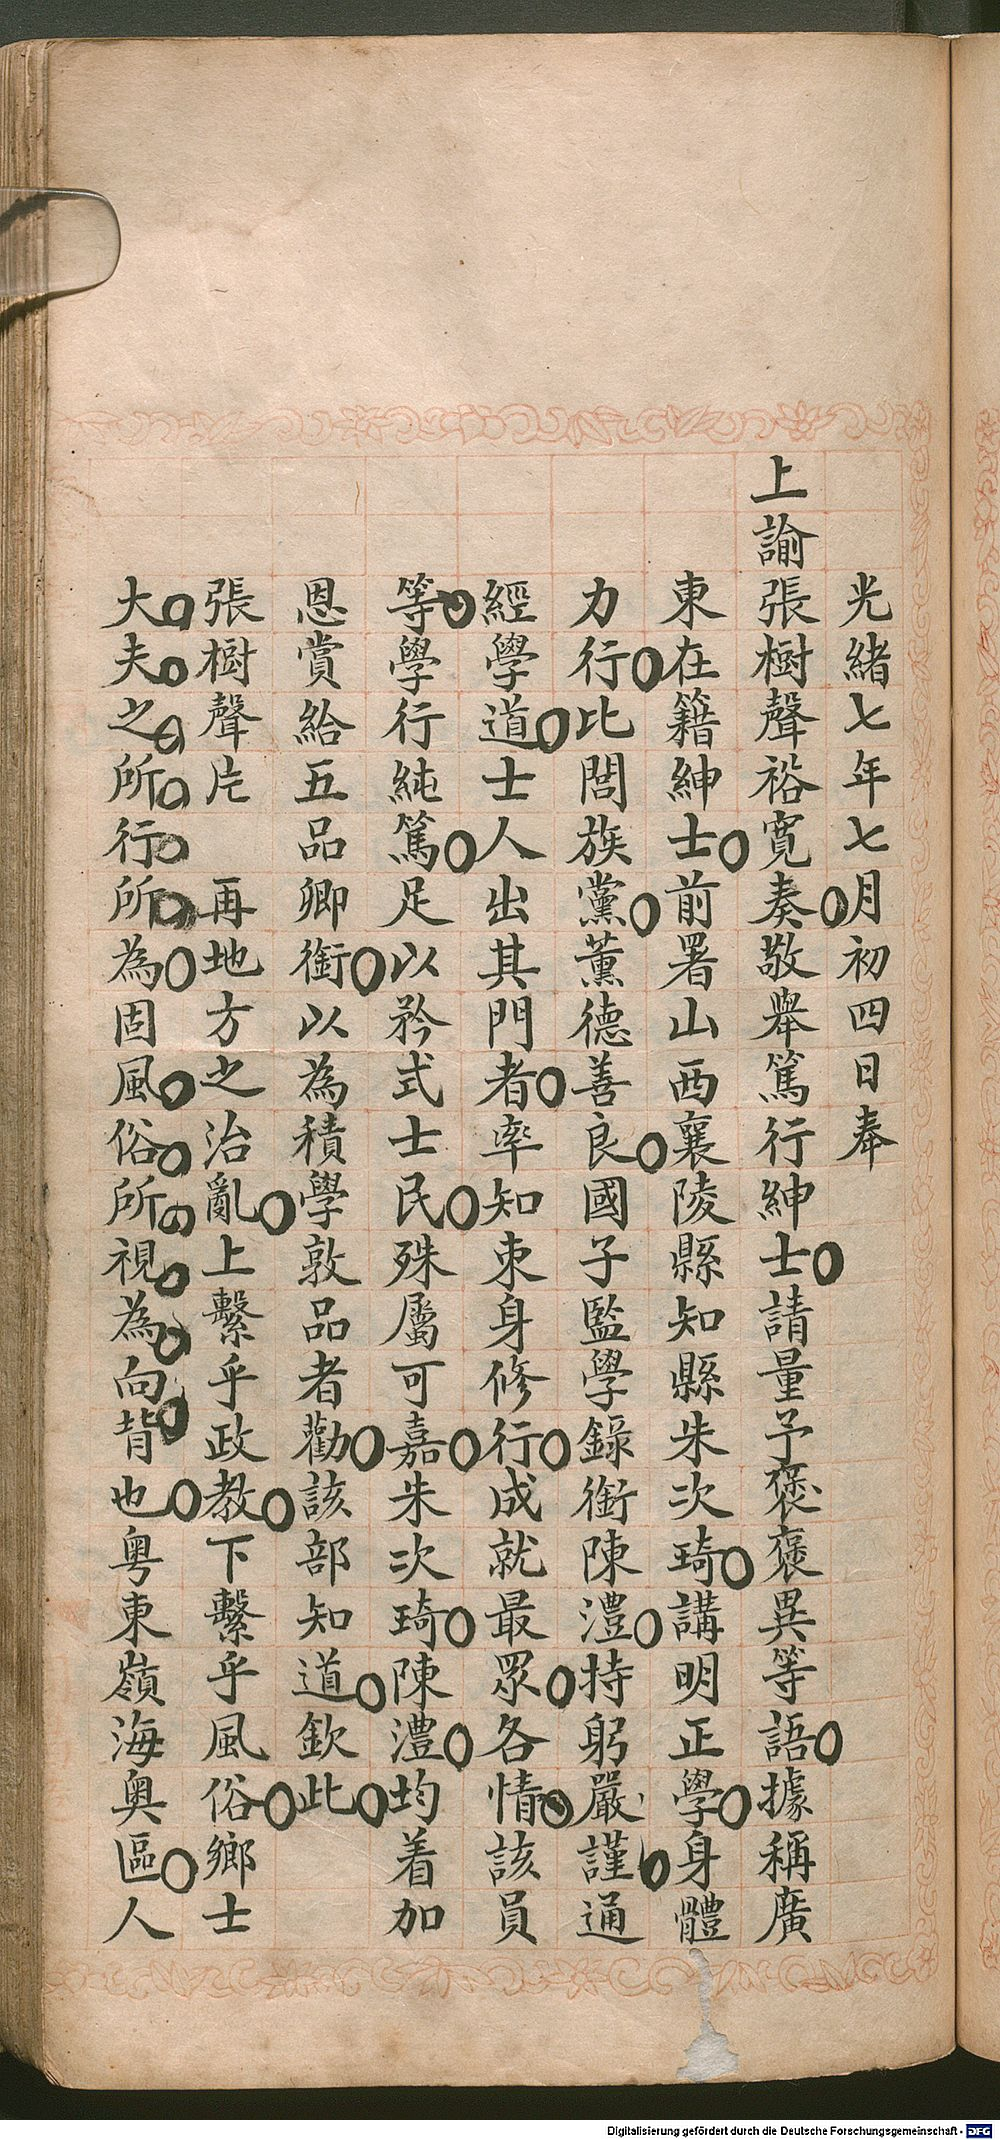 光緒七年七月初四日奉
上諭張樹聲裕寬奏敬舉篤行紳士請量予襃襃異等語據稱廣
東在籍紳士前署山西襄陵縣知縣朱次琦講明正學身體
力行比閭族黨薰德善良國子監學錄銜陳澧持躬嚴謹通
經學道士人出其門者率知束身修行成就最眾各情該員
等學行純篤足以矜式士民殊屬可嘉朱次琦陳澧均着加
恩賞給五品卿銜以為積學敦品者勸該部知道欽此
張樹聲片 再地方之治亂上繫乎政教下繫乎風俗鄉士
大夫之所行所為固風俗所視為向背也粵東嶺海奧區人
Digitalisierung gefördert durch die Deutsche Forschungsgemeinschaft - DFG